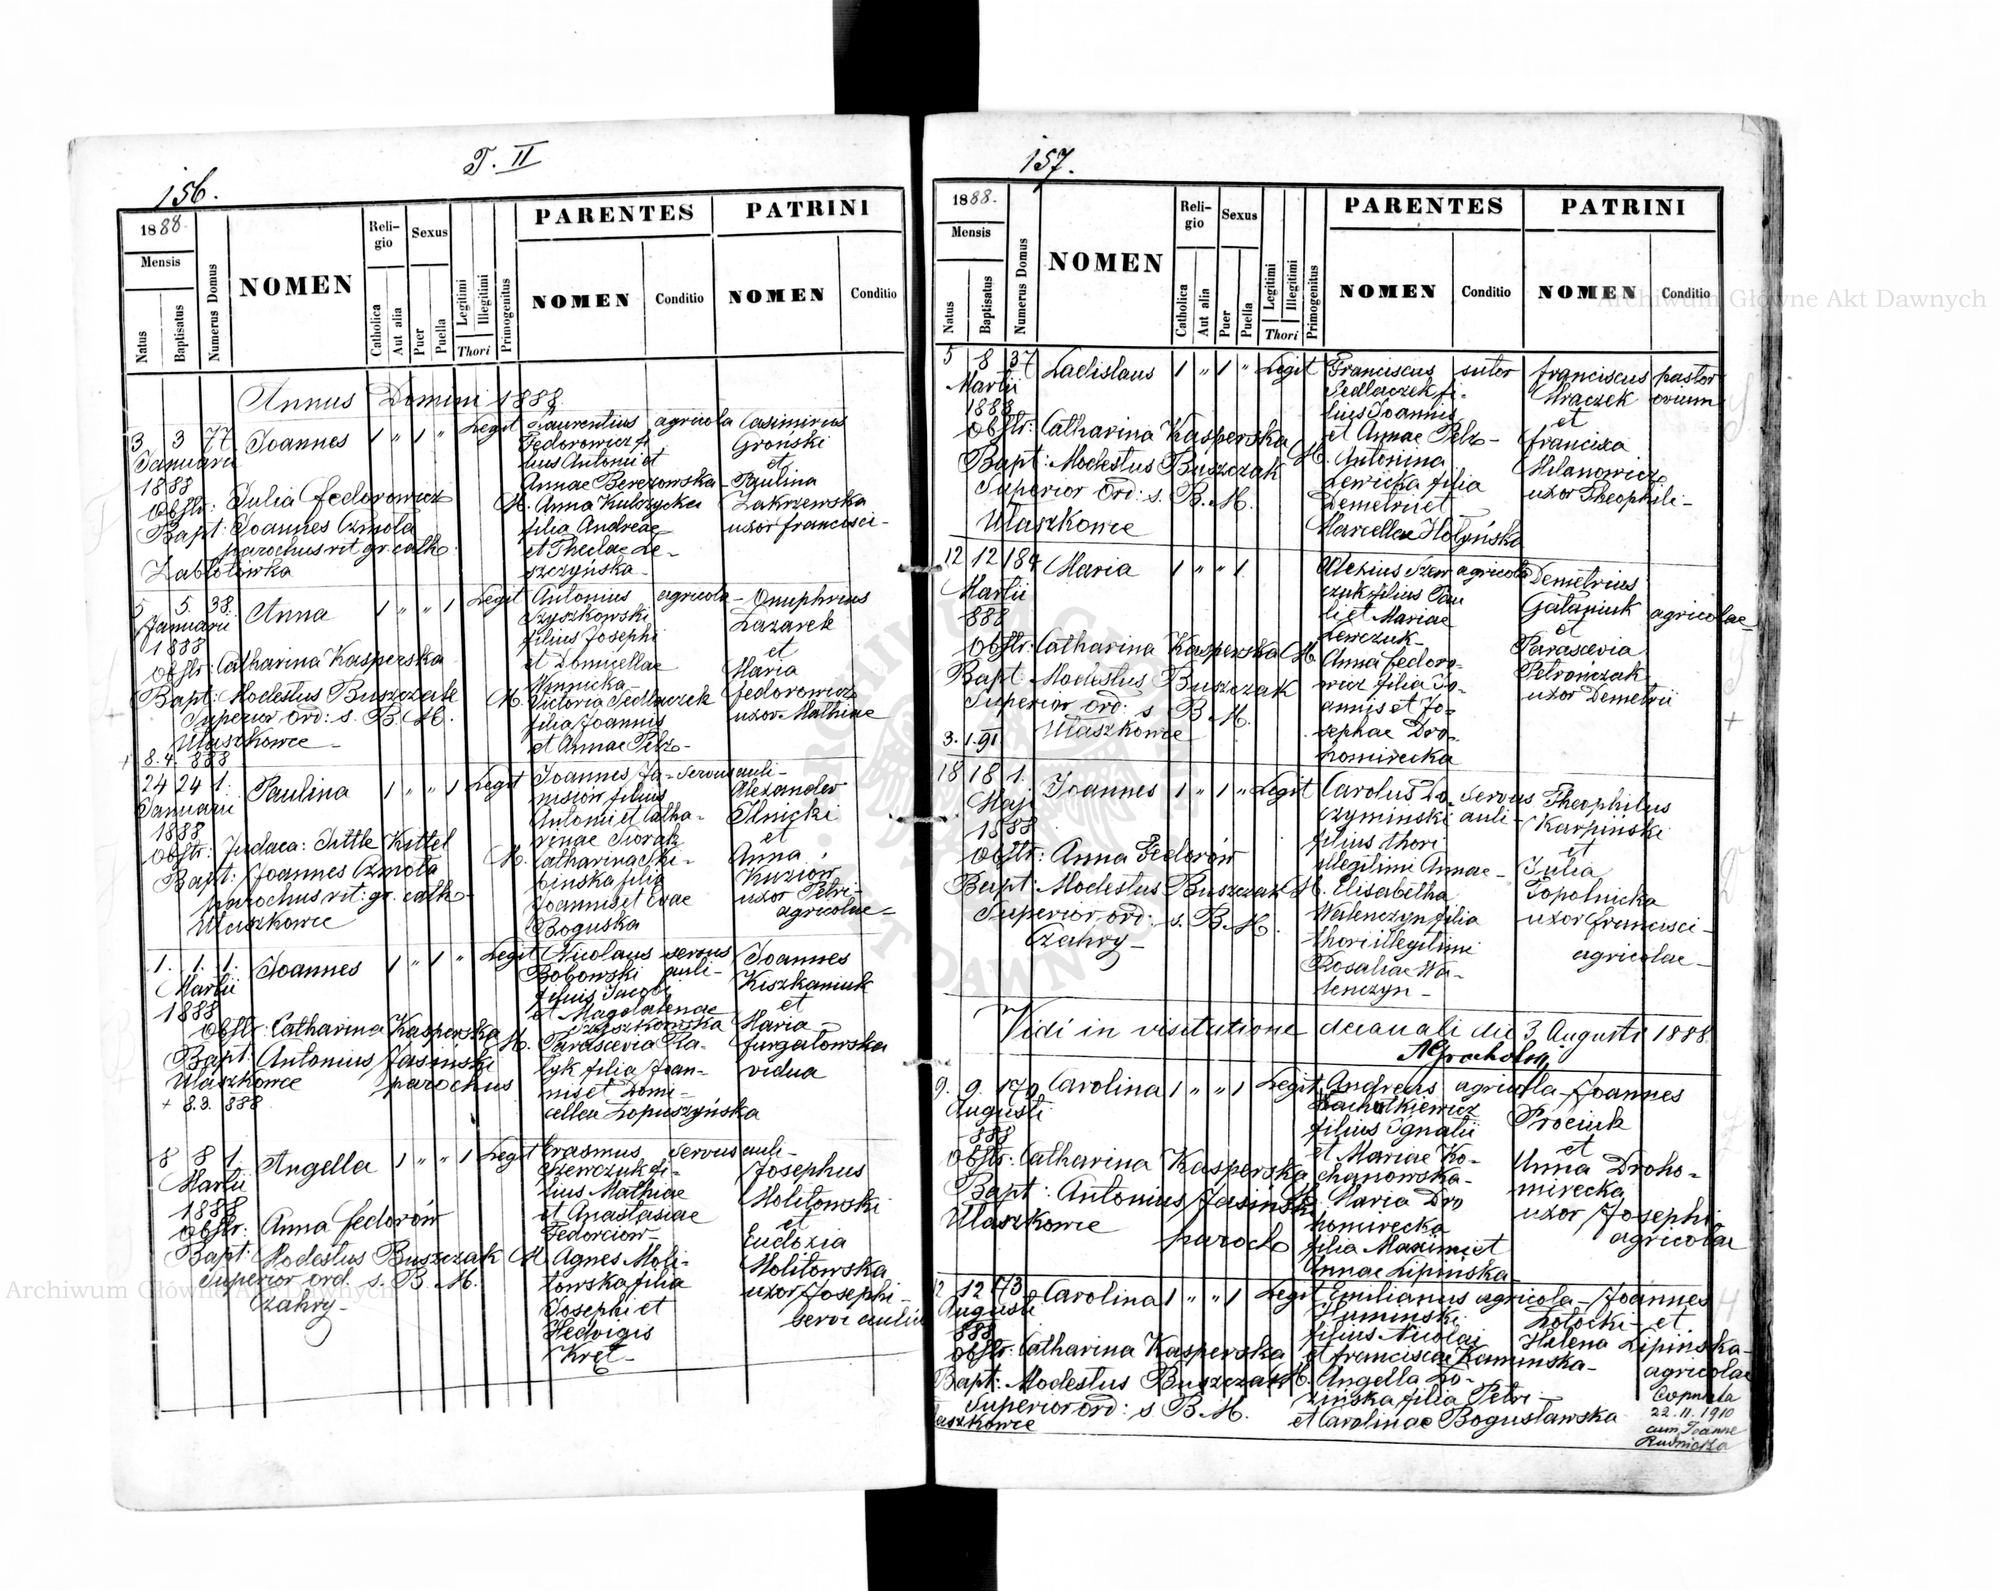 156.
T. II
1888.
Mensis
Natus
Baptisatus
Numerus Domus
NOMEN
Reli-
gio
Catholica
Aut alia
Sexus
Puer
Puella
Legitimi
Illegitimi
Thori
Primogenitus
PARENTES
NOMEN
Conditio
PATRINI
NOMEN
Conditio
Annus Domini 1888
3 3 77 Joannes 1 " 1 " Legit
Januarii
1888
Obstr: Julia Fedorowicz
Bapt: Joannes Czmola
parochus rit. gr. cath.
Zabłotówka
Laurentius agricola
Fedorowicz fi
lius Antonii et
Annae Berezowska
M. Anna Kulczycka
filia Andreae
et Theclae Le-
szczyńska
Casimirus
Groński
et
Paulina
Zakrzewska
uxor Francisci
5 5 38. Anna 1 " " 1 Legit
Januarii
1888
Obstr: Catharina Kasperska
Bapt: Modestus Buszczak
Superior Ord: s. B. M.
Ułaszkowce
+ 8.4. 888
Antonius agricola
Szyszkowski
filius Josephi
et Domicellae
Winnicka
M. Victoria Sedlaczek
filia Joannis
et Annae Pelz
Onuphrius
Lazarek
et
Maria
Fedorowicz
uxor Mathiae
24 24 1. Paulina 1 " " 1 Legit
Januarii
1888
Obstr: Judaea: Tittle Kittel
Bapt: Joannes Czmola
parochus rit: gr. cath.
Ułaszkowce
Joannes Ja- servus auli-
nisiów filius
Antonii et Catha-
rinae Siorak
M. Catharina Ski-
binska filia
Joannis et Evae
Boguska
Alexander
Ilnicki
et
Anna
Kuziów
uxor Petri
agricolae
1. 1. 1. Joannes 1 " 1 " Legit
Martii
1888
Obstr: Catharina Kasperska
Bapt: Antonius Jasinski
Ułaszkowce parochus
+ 8.3. 888
Nicolaus servus
Bobowski auli-
filius Jacobi
et Magdalenae
Szyszkowska
M. Parascevia Ra-
łyk filia Joan-
nis et Domi-
cellae Łopuszyńska
Joannes
Kiszkaniuk
et
Maria
Furgałowska
vidua
8 8 1. Angella 1 " " 1 Legit
Martii
1888
Obstr: Anna Fedorów
Bapt: Modestus Buszczak
Superior ord. s. B. M.
Czahry
Erasmus servus auli-
Szewczuk fi-
lius Mathiae
et Anastasiae
Fedorciów
M. Agnes Moli-
towska filia
Josephi et
Hedvigis
Kręt
Josephus
Molitowski
et
Eudoxia
Molitowska
uxor Josephi
servi aulici
157.
1888.
Mensis
Natus
Baptisatus
Numerus Domus
NOMEN
Reli-
gio
Catholica
Aut alia
Sexus
Puer
Puella
Legitimi
Illegitimi
Thori
Primogenitus
PARENTES
NOMEN
Conditio
PATRINI
NOMEN
Conditio
5 8 37 Ladislaus 1 " 1 " Legit
Martii
1888
Obstr: Catharina Kasperska
Bapt: Modestus Buszczak
Superior Ord: s. B. M.
Ułaszkowce
Franciscus sutor
Sedlaczek fi-
lius Joannis
et Annae Pelz
M. Antonina
Lewicka filia
Demetrii et
Marcellae Hołyńska
Franciscus pastor
Mraczek ovium
et
Francisca
Milanowicz
uxor Theophili
12 12 184 Maria 1 " " 1
Martii
888
Obstr: Catharina Kasperska
Bapt Modestus Buszczak
Superior Ord: s B. M.
Ułaszkowce
3. 1. 91.
Alexius Szew agricola
czuk filius Pau
li et Mariae
Lewczuk
M. Anna Fedoro-
wicz filia Jo-
annis et Jo-
sephae Dro-
homirecka
Demetrius
Gataniuk agricolae
et
Parascevia
Petrończak
uxor Demetrii
18 18 1. Joannes 1 " 1 " Legit
Maji
1888
Obstr: Anna Fedorów
Bapt: Modestus Buszczak
Superior ord: s. B. M.
Czahry
Carolus Do- servus
czyminski auli-
filius thori
illegitimi Annae
M. Elisabetha
Walenczyn filia
thori illegitimi
Rosaliae Wa-
lenczyn
Theophilus
Karpiński
et
Julia
Topolnicka
uxor Francisci
agricolae
Vidi in visitatione decanali die 3 Augusti 1888.
9. 9. 179 Carolina 1 " " 1 Legit
Augusti
888
Obstr: Catharina Kasperska
Bapt: Antonius Jasinski
Ułaszkowce paroch
Andreas agricola
filius Ignatii
et Mariae Ko-
chanowska
Maria Dro
homirecka
filia Maximi et
Annae Lipińska
Joannes
Prociuk
et
Anna Droho-
mirecka
uxor Josephi
agricolae
12 12 173 Carolina 1 " " 1 Legit
Augusti
888
Obstr: Catharina Kasperska
Bapt: Modestus Buszczak
Superior ord: s. B. M.
Emilianus agricola
Kaminski
filius Nicolai
et Franciscae Kaminska
M. Angella Ło-
zińska filia Petri
et Carolinae Bogusławska
Joannes
Zołocki et
Helena Lipińska
agricolae
Copulata
22. 11. 1910
cum Joanne
Archiwum Główne Akt Dawnych
Archiwum Główne Akt Dawnych